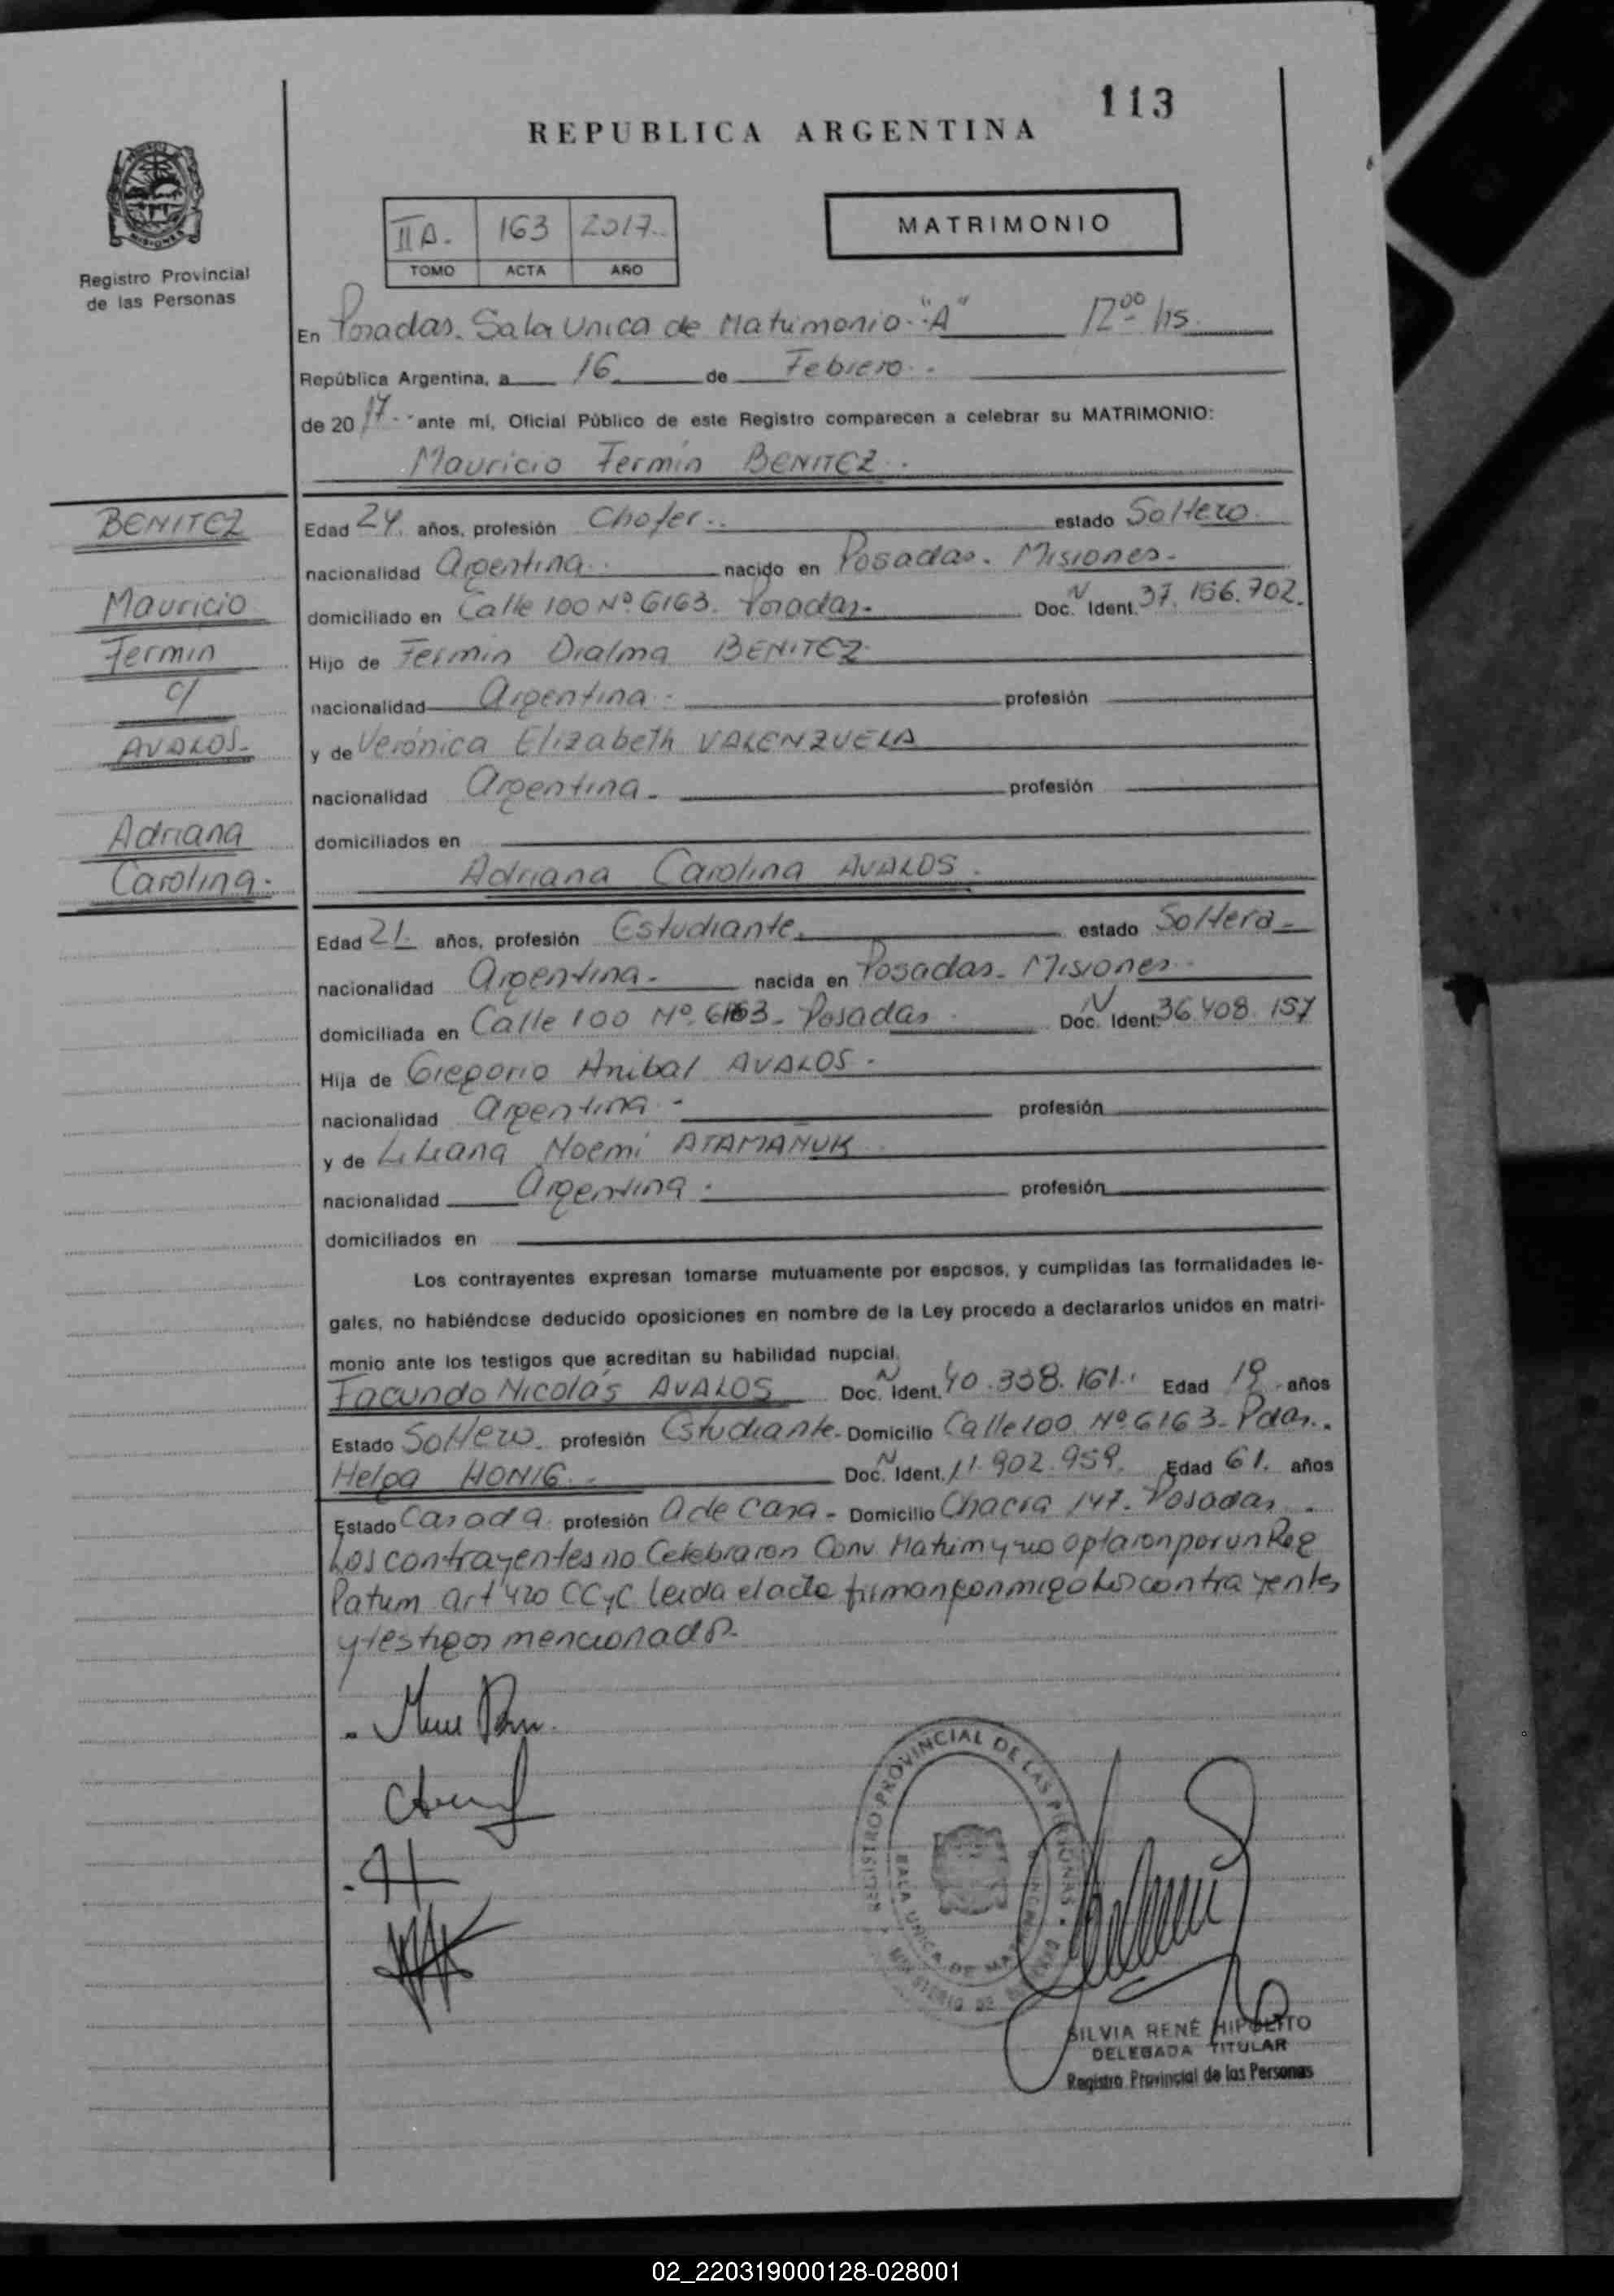 113
REPUBLICA ARGENTINA
MISIONES
Registro Provincial
de las Personas
II A. 163 2017.
TOMO ACTA AÑO
MATRIMONIO
En Posadas. Sala Unica de Matrimonio. "A" 12 00 hs.
República Argentina, a 16 de Febrero.
de 20 17. ante mí, Oficial Público de este Registro comparecen a celebrar su MATRIMONIO:
Mauricio Fermin BENITEZ.
BENITEZ
Mauricio
Fermin
c/
AVALOS.
Adriana
Carolina.
Edad 24. años, profesión Chofer. estado Soltero.
nacionalidad Argentina. nacido en Posadas. Misiones.
domiciliado en Calle 100 Nº 6163. Posadas. Doc. N Ident. 37.156.702.
Hijo de Fermin Dialma BENITEZ
nacionalidad Argentina. profesión
y de Verónica Elizabeth VALENZUELA
nacionalidad Argentina. profesión
domiciliados en
Adriana Carolina AVALOS.
Edad 21. años, profesión Estudiante. estado Soltera.
nacionalidad Argentina. nacida en Posadas. Misiones.
domiciliada en Calle 100 Nº 6163. Posadas. Doc. N Ident. 36.408.157
Hija de Gregorio Anibal AVALOS.
nacionalidad Argentina. profesión
y de Liliana Noemi ATAMAÑUK
nacionalidad Argentina. profesión
domiciliados en
Los contrayentes expresan tomarse mutuamente por esposos, y cumplidas las formalidades le-
gales, no habiéndose deducido oposiciones en nombre de la Ley procedo a declararlos unidos en matri-
monio ante los testigos que acreditan su habilidad nupcial.
Facundo Nicolás AVALOS Doc. N Ident. 40.338.161. Edad 19 años
Estado Soltero. profesión Estudiante. Domicilio Calle 100 Nº 6163. Pdas.
Helga HONIG. Doc. N Ident. 11.902.959. Edad 61. años
Estado Casada. profesión A de Casa. Domicilio Chacra 147. Posadas.
Los contrayentes no Celebraron Conv. Matrim y no optaron por un Reg
Patrim art 420 CCyC leida el acta firman conmigo los contrayentes
y testigos mencionados.
REGISTRO PROVINCIAL DE LAS PERSONAS
SALA UNICA DE
SILVIA RENÉ HIPOLITO
DELEGADA TITULAR
Registro Provincial de las Personas
02_220319000128-028001